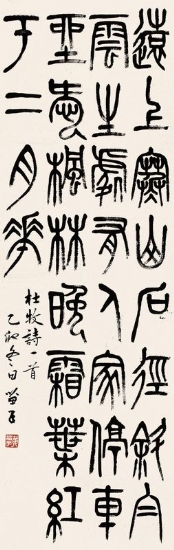 遠上寒山石徑斜白
雲生處有人家停車
坐愛楓林晚霜葉紅
于二月花
杜牧詩一首
乙冬日